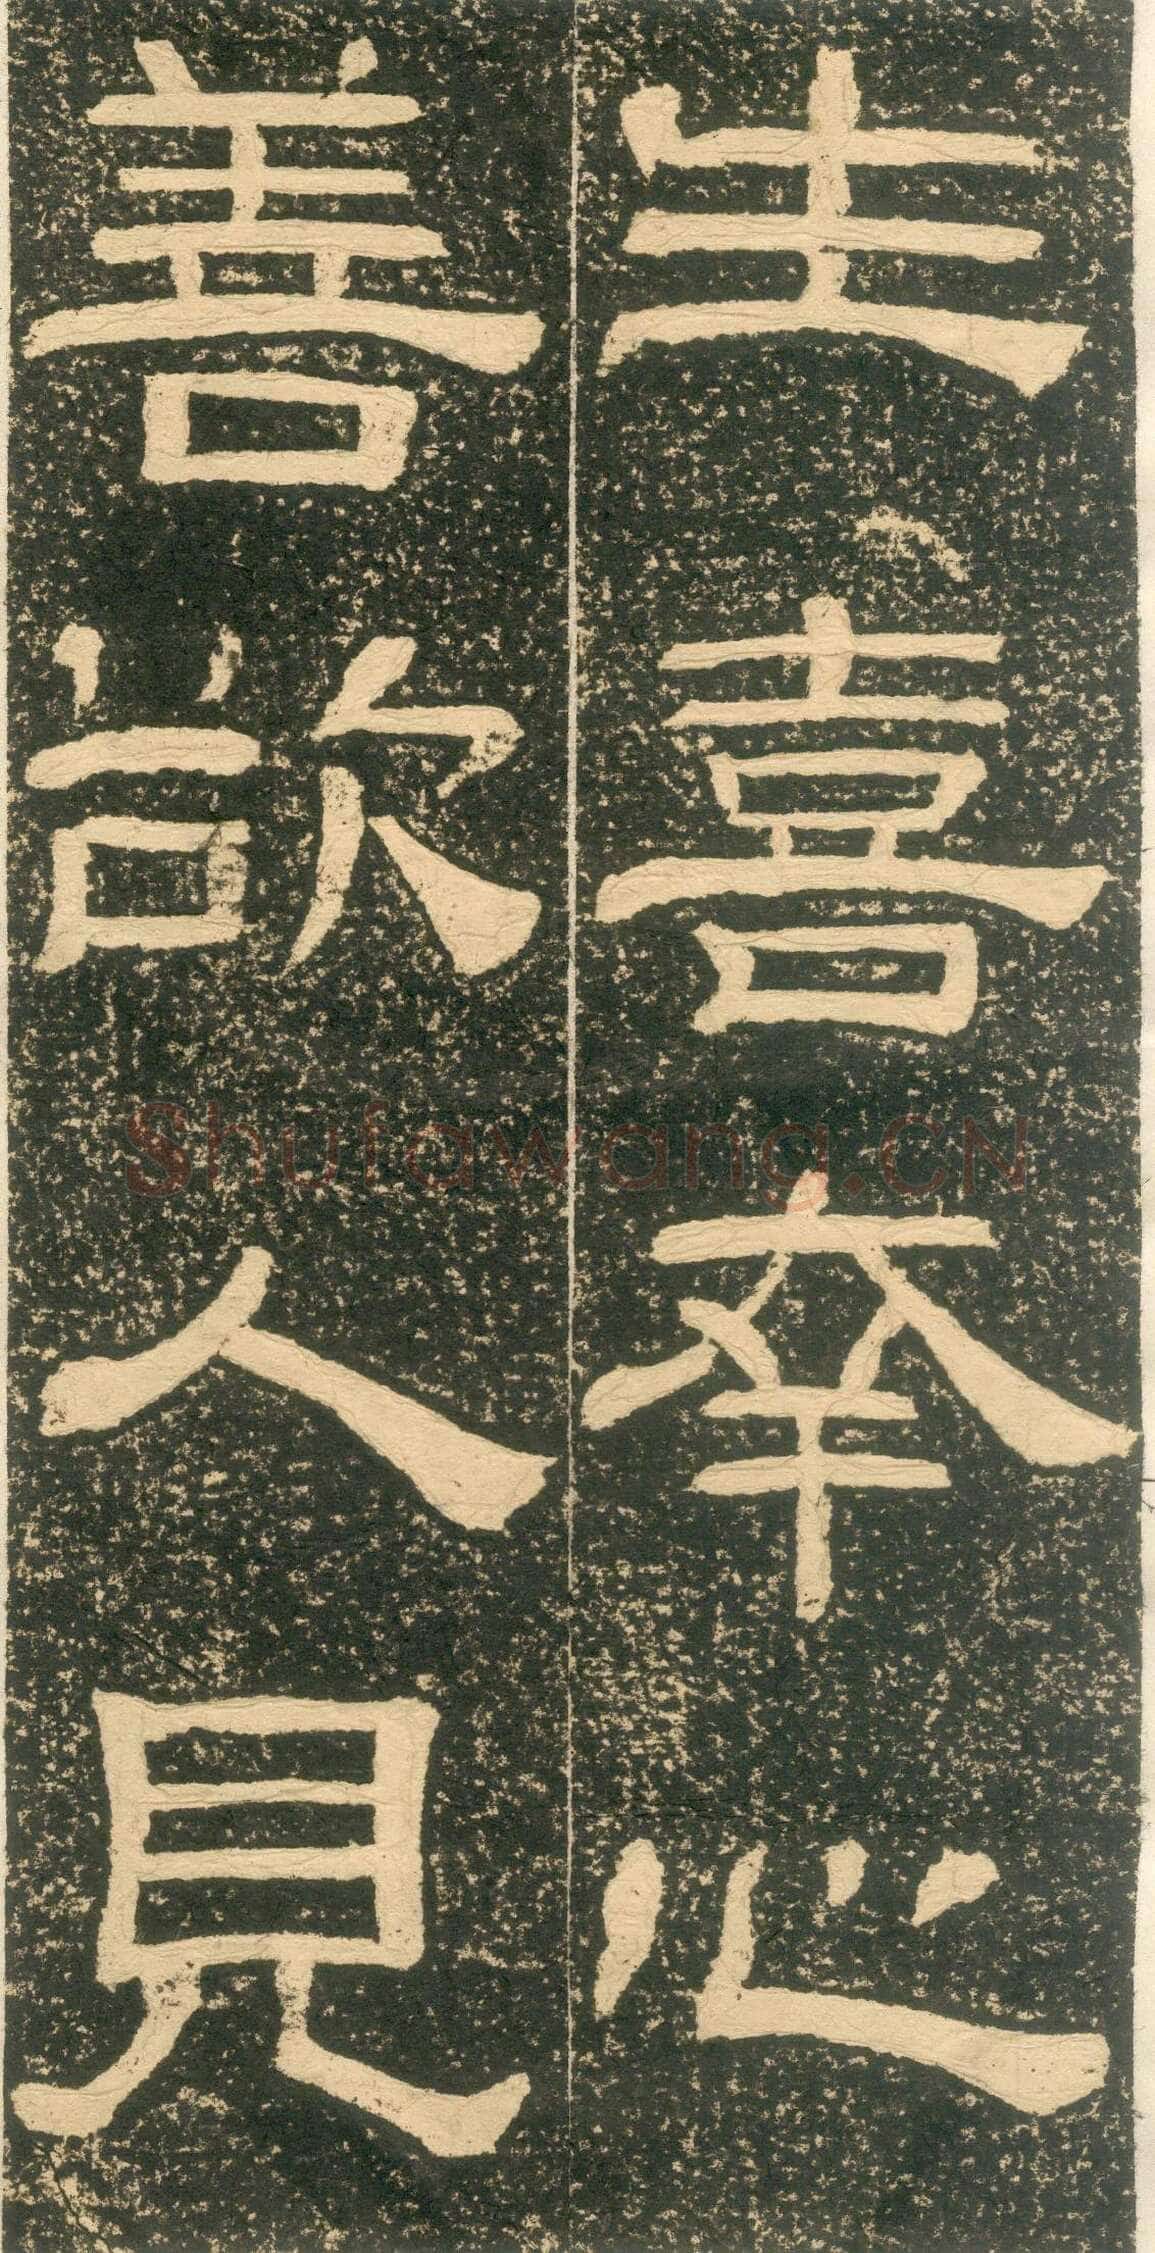 生喜幸心
善欲人見
Shufawang.CN